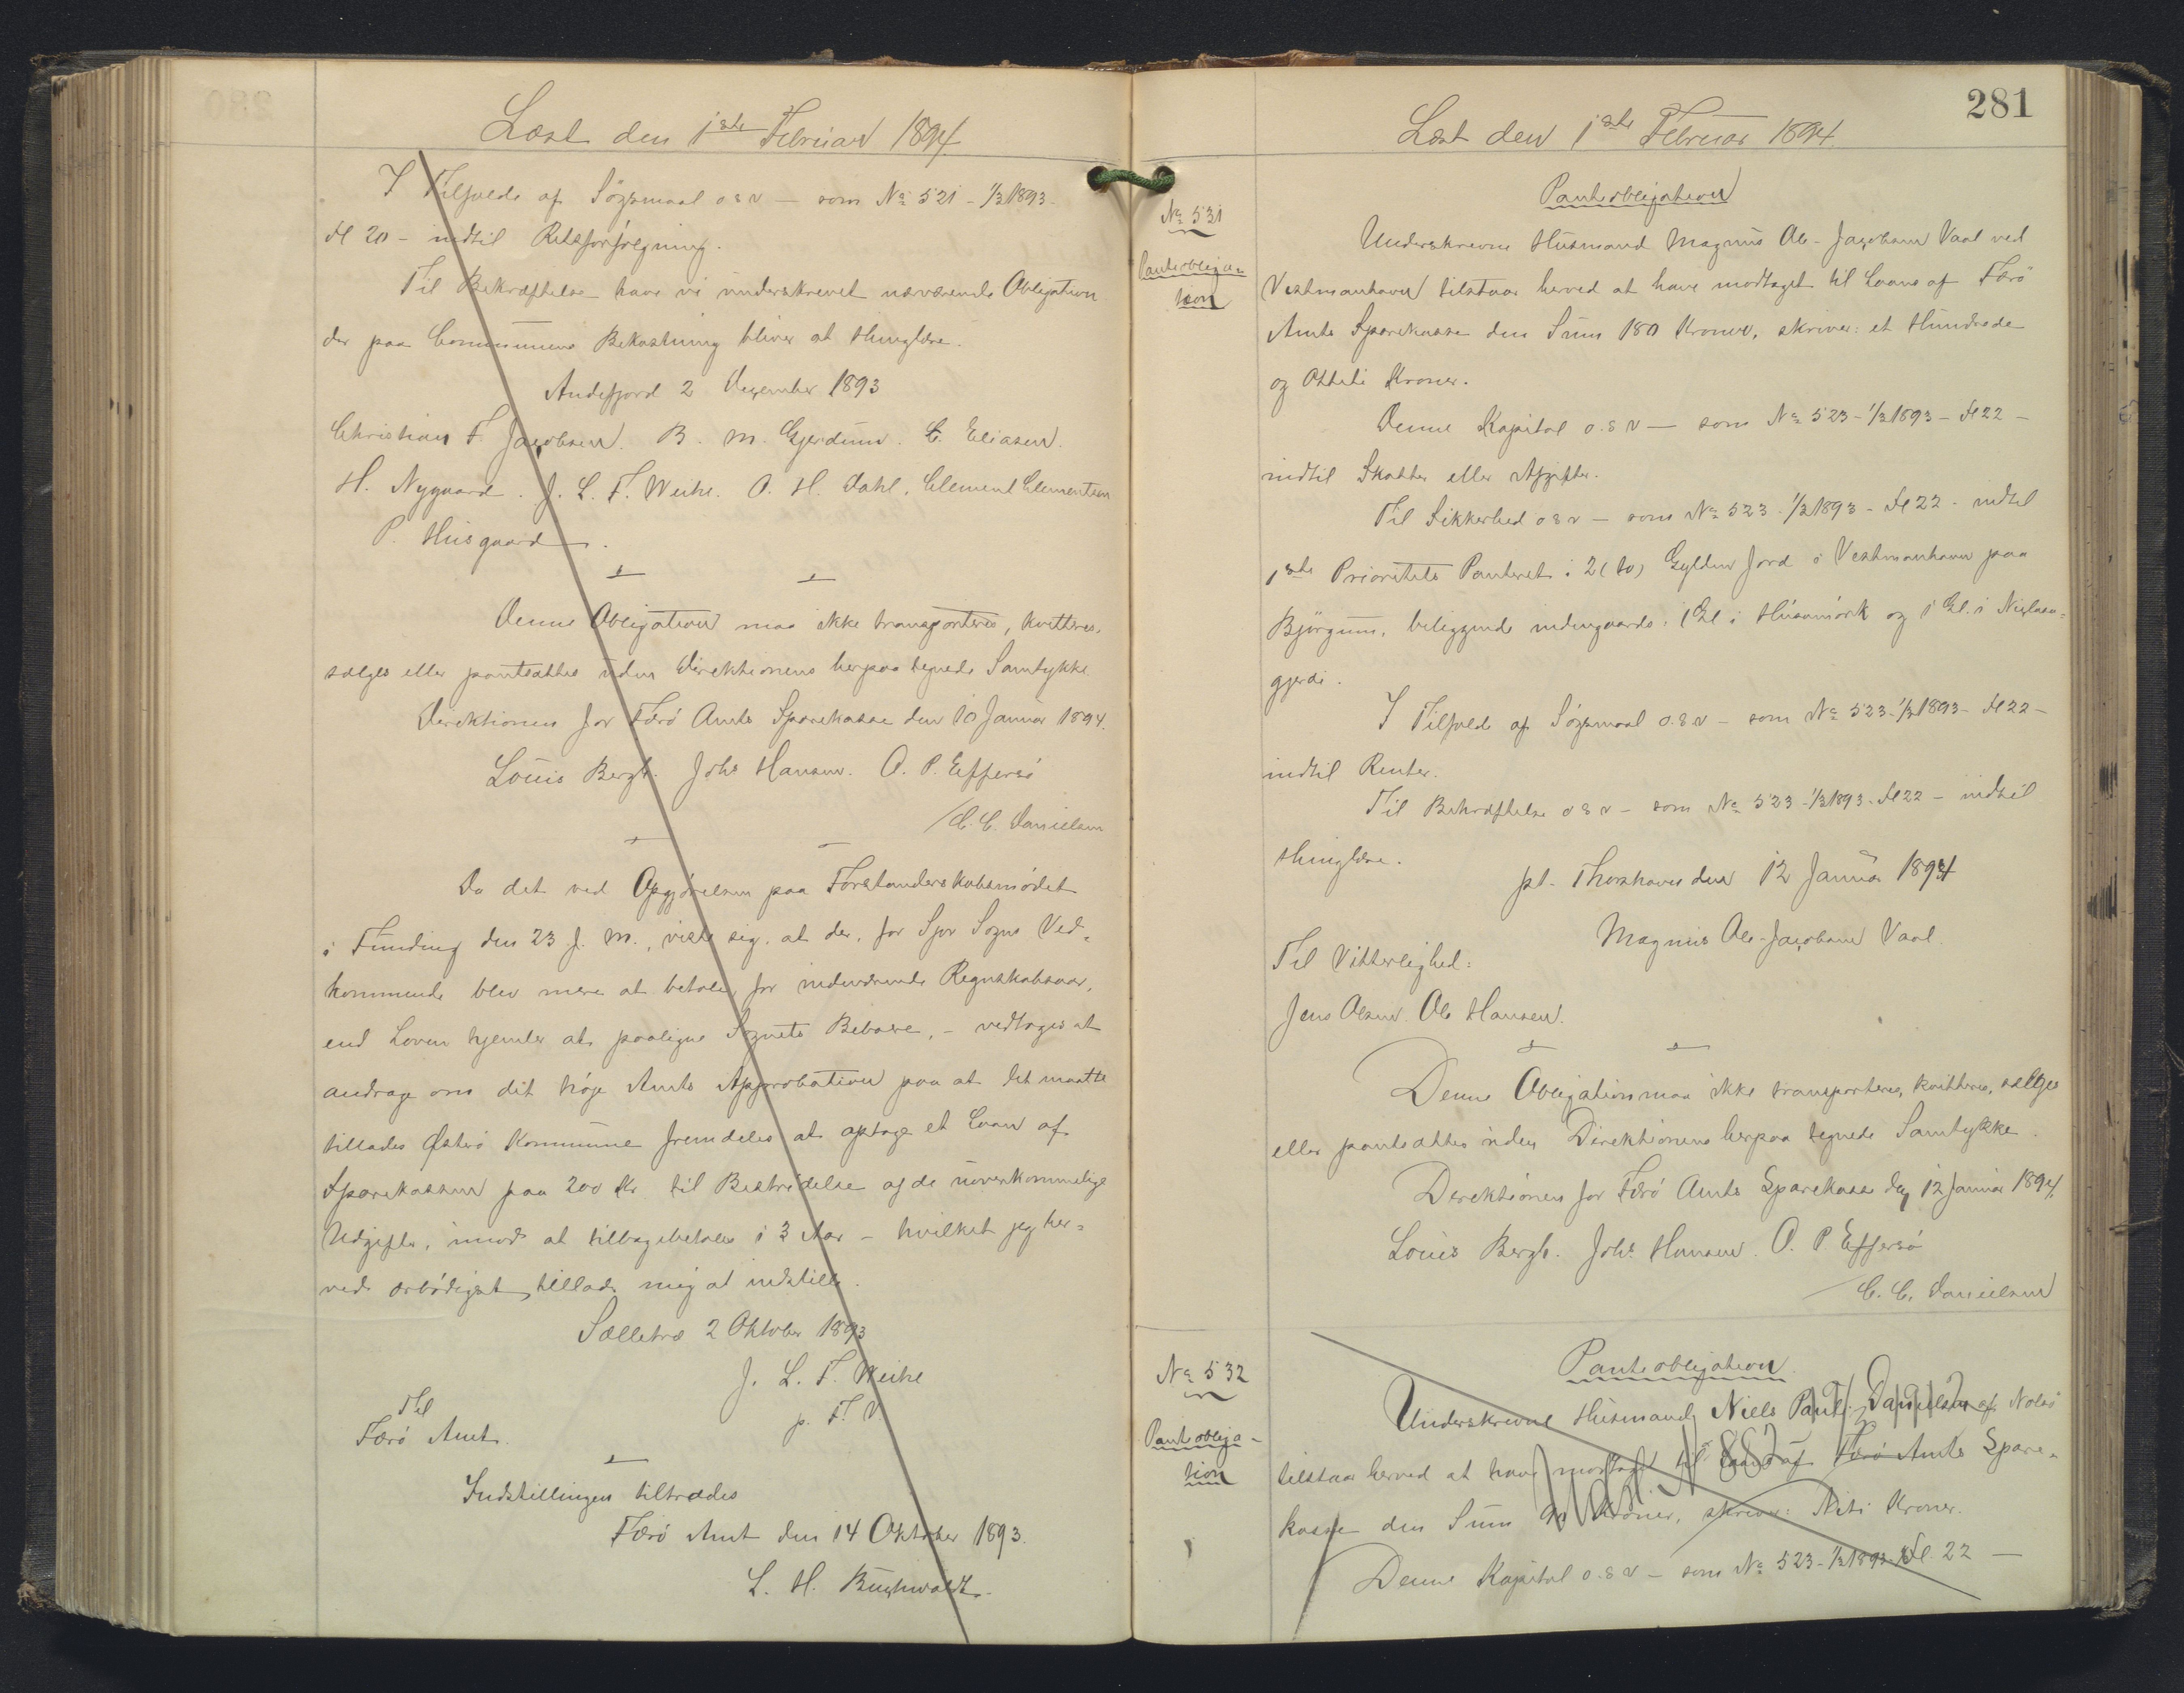 Læst den 1ste Februar 1894.
I Tilfælde af Søgsmaal o s v — som No 521 - 1/2 1893.
Fl 20 - indtil Retsforfølgning.
Til Bekræftelse have vi underskrevet nærværende Obligation
der paa Communens Bekostning bliver at thinglæse.
Andefjord 2 Dezember 1893
Christian F. Jacobsen. B. M. Gjerdum. C. Eliasen.
H. Nygaard. J. L. F. Weihe. O. H. Dahl. Clement Clementsen
P. Husgaard.
Denne Obligation maa ikke transporteres, kvitteres,
sælges eller pantsættes uden Direktionens herpaa tegnede Samtykke
Direktionen for Færø Amts Sparekasse den 10 Januar 1894.
Louis Bergh. Johs Hansen. O. P. Effersø
/C. C. Danielsen
Da det ved Opgjørelsen paa Forstanderskabsmødet
i Funding den 23 f. M., viste sig, at der, for Sjov Sogns Ved-
kommende blev mere at betale, for indeværende Regnskabsaar,
end Loven hjemler at paaligne Sognets Beboere, - vedtoges at
andrage om det høje Amts Approbation paa at det maatte
tillades Østerø Kommune fremdeles at optage et Laan af
Sparekassen paa 200 Kr. til Bestridelse af de uoverkommelige
Udgifter, imod at tilbagebetales i 3 Aar - hvilket jeg her-
ved ærbødigst tillader mig at indstille.
Sælletræ 2 Oktober 1893
J. L. F. Weihe
p. F. V.
Til
Færø Amt.
Indstillingen tiltrædes
Færø Amt den 14 Oktober 1893.
L. H. Buchwaldt.
281
Læst den 1ste Februar 1894.
No 531
Panteobliga-
tion
Panteobligation
Underskrevne Husmand Magnus Ole-Jacobsen Vaal ved
Vestmanhavn tilstaar herved at have modtaget til Laans af Færø
Amts Sparekasse den Sum 180 Kroner, skriver: et Hundrede
og Otteti Kroner.
Denne Kapital o. s v — som No 523 - 1/2 1893 - Fl 22 -
indtil Skatter eller Afgifter.
Til Sikkerhed o s v — som No 523 - 1/2 1893 - Fl 22 - indtil
1ste Prioritets Panteret i 2 (to) Gylden Jord i Vestmanhavn paa
Bjørgum, beliggende indengaards. 1 Gl i Húsamørk og 1 Gl. i Niclasa-
gjerdi.
I Tilfælde af Søgsmaal o. s v - som No 523 - 1/2 1893 - Fl 22 -
indtil Renter.
Til Bekræftelse o s v - som No 523 - 1/2 1893 - Fl 22 - indtil
thinglæse.
pt. Thorshavn den 12 Januar 1894
Magnus Ole-Jacobsen Vaal.
Til Vitterlighed:
Jens Olsen. Ole Hansen.
Denne Obligation maa ikke transporteres, kvitteres, sælges
eller pantsættes uden Direktionens herpaa tegnede Samtykke.
Direktionen for Færø Amts Sparekasse den 12 Januar 1894.
Louis Bergh. Johs Hansen. O. P. Effersø
/C. C. Danielsen
No 532
Panteobliga-
tion
Panteobligation.
Underskrevne Husmand Niels Paul Danielsen af Nolsø
tilstaar herved at have modtaget til Laans af Færø Amts Spare-
kasse den Sum 90 Kroner, skriver: Niti Kroner.
Denne Kapital o. s v — som No 523 - 1/2 1893 - Fl. 22 —